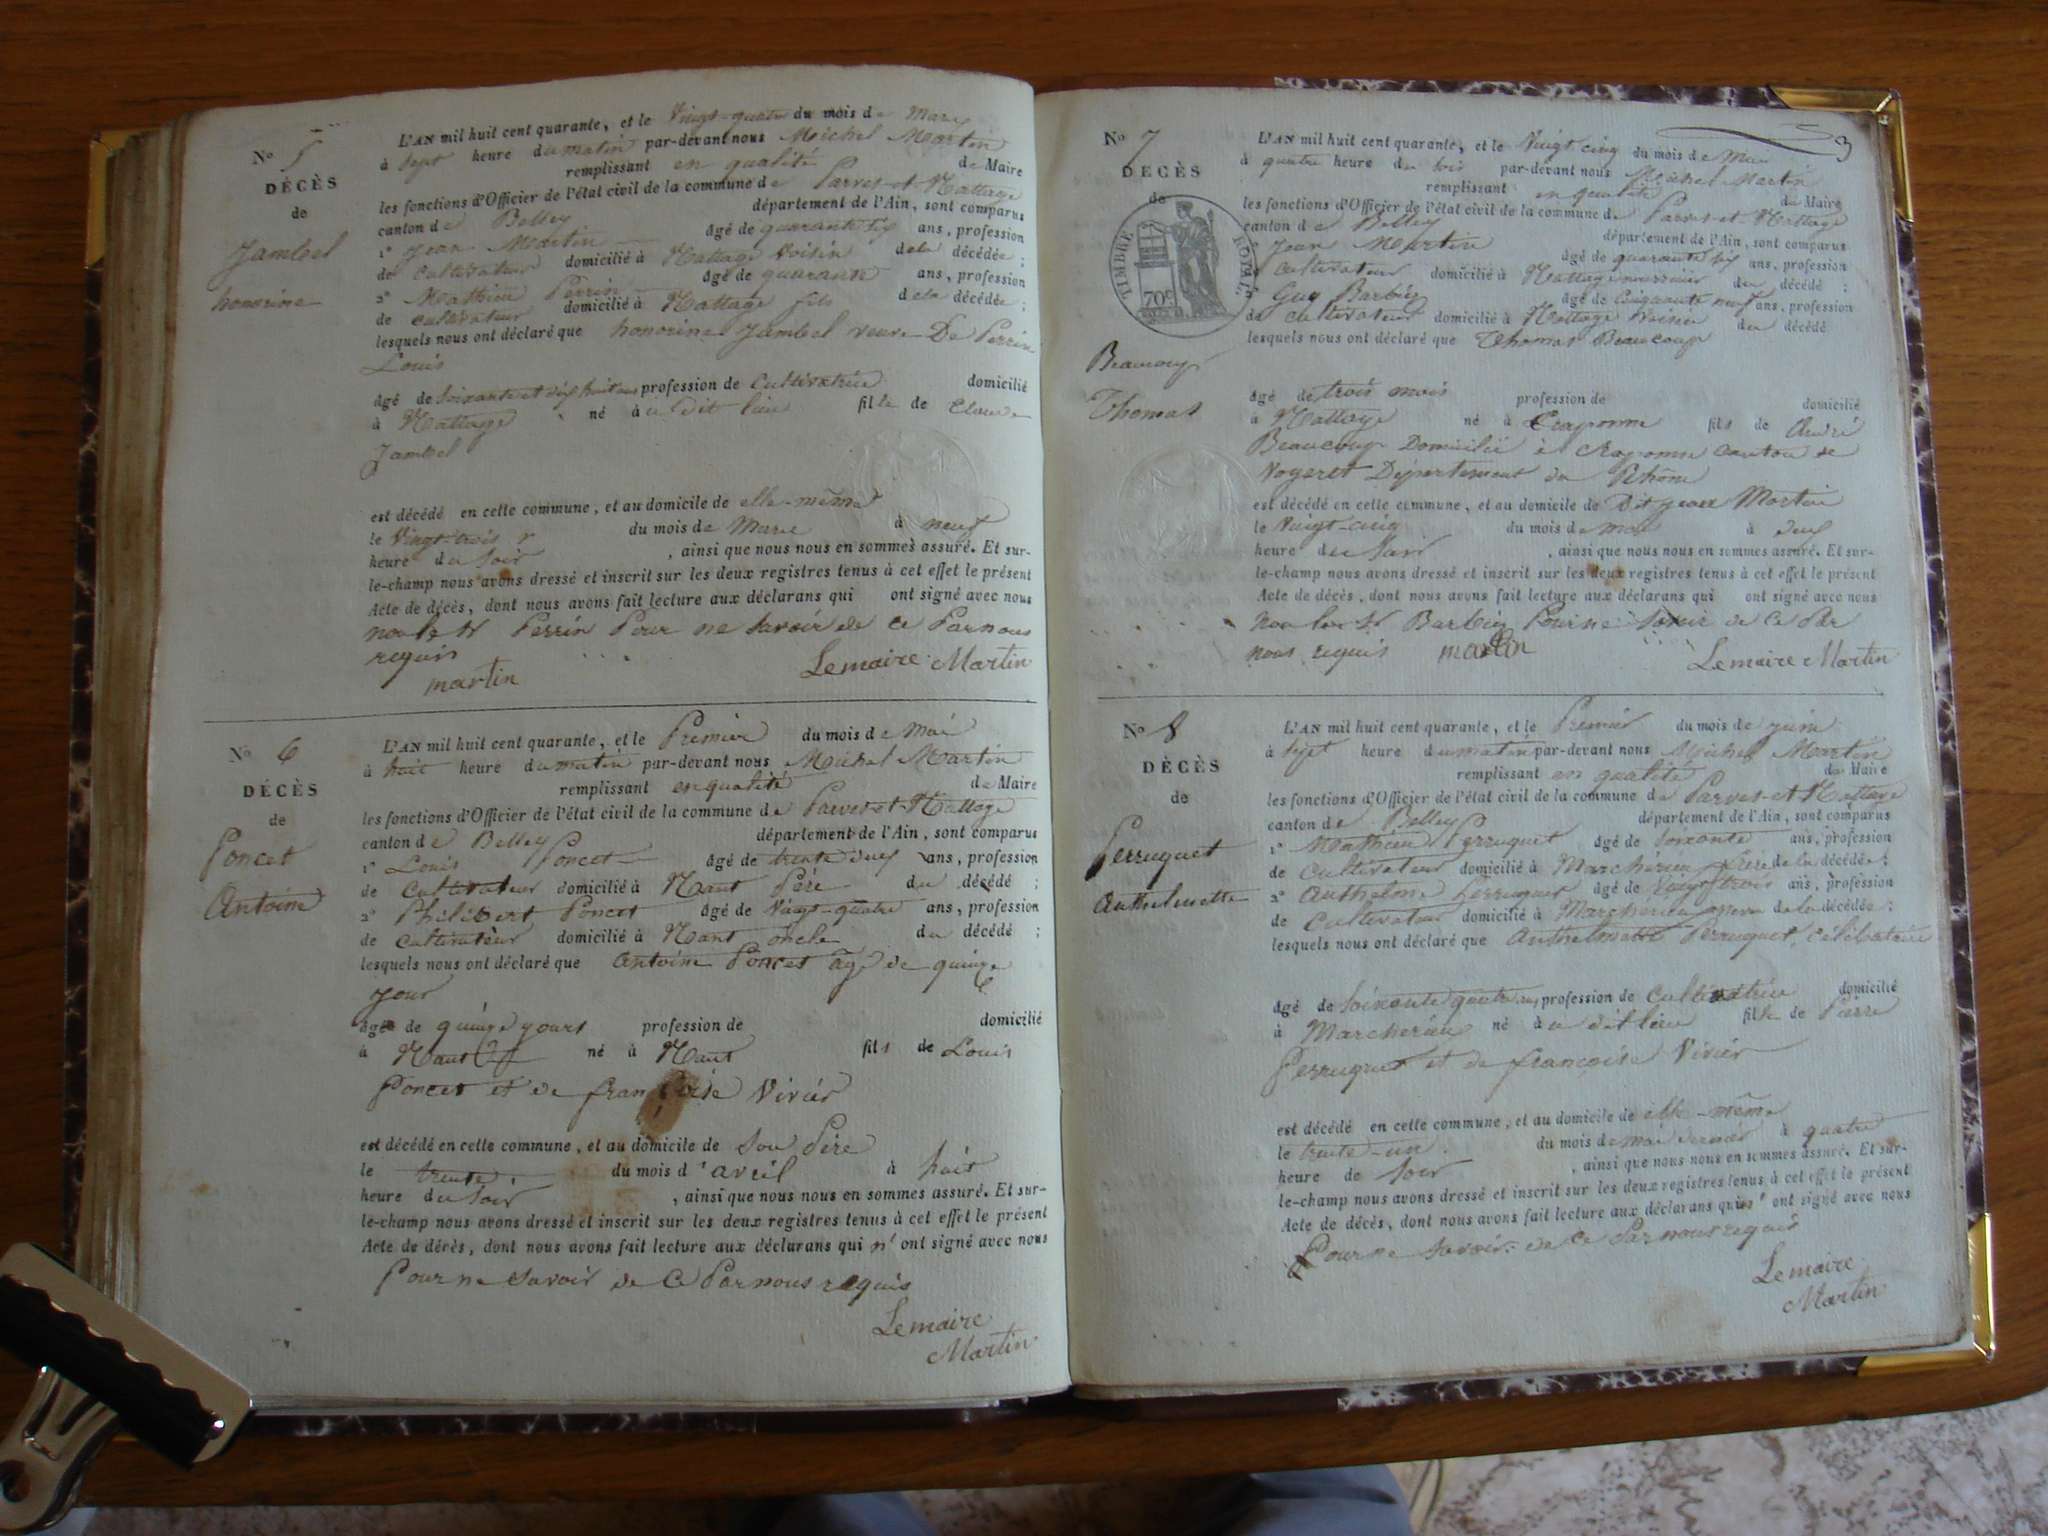 N° 5
DÉCÈS
de
Jambel
honorine
L'AN mil huit cent quarante, et le Vingt-quatre du mois de Mars
à sept heure du matin par-devant nous Michel Martin
remplissant en qualité de Maire
les fonctions d'Officier de l'état civil de la commune de Parves-et-Nattage
canton de Belley département de l'Ain, sont comparus
1° Jean Martin âgé de quarante six ans, profession
de Cultivateur domicilié à Nattage Voisin de la décédée ;
2° Mathieu Perrin âgé de quarante ans, profession
de Cultivateur domicilié à Nattage fils de la décédée ;
lesquels nous ont déclaré que honorine Jambel veuve De Perrin
Louis
âgé de Soixante et dix huit ans profession de Cultivatrice domicilié
à Nattage né à u dit lieu fille de Claude
Jambel
est décédé en cette commune, et au domicile de elle-même
le Vingt trois du mois de Mars à neuf
heure du Soir , ainsi que nous nous en sommes assuré. Et sur-
le-champ nous avons dressé et inscrit sur les deux registres tenus à cet effet le présent
Acte de décès, dont nous avons fait lecture aux déclarans qui ont signé avec nous
non le Perrin Pour ne Savoir de ce Par nous
requis
martin Lemaire Martin
N° 6
DÉCÈS
de
Poncet
Antoine
L'AN mil huit cent quarante, et le Premier du mois de Mai
à huit heure du matin par-devant nous Michel Martin
remplissant en qualité de Maire
les fonctions d'Officier de l'état civil de la commune de Parves-et-Nattage
canton de Belley département de l'Ain, sont comparus
1° Louis Poncet âgé de trente deux ans, profession
de Cultivateur domicilié à Nant Père du décédé ;
2° Philibert Poncet âgé de Vingt-quatre ans, profession
de Cultivateur domicilié à Nant oncle du décédé ;
lesquels nous ont déclaré que Antoine Poncet âgé de quinze
jour
âgé de quinze yours profession de domicilié
à Nant né à Nant fils de Louis
Poncet et de françoise Vivier
est décédé en cette commune, et au domicile de Son Père
le trente du mois d'avril à huit
heure du Soir , ainsi que nous nous en sommes assuré. Et sur-
le-champ nous avons dressé et inscrit sur les deux registres tenus à cet effet le présent
Acte de décès, dont nous avons fait lecture aux déclarans qui n'ont signé avec nous
Pour ne Savoir de Ce Par nous requis
Lemaire
Martin
3
N° 7
DÉCÈS
de
TIMBRE ROYAL
70c
Beaucoup
Thomas
L'AN mil huit cent quarante, et le Vingt cinq du mois de Mai
à quatre heure du Soir par-devant nous Michel Martin
remplissant en qualité de Maire
les fonctions d'Officier de l'état civil de la commune de Parves-et Nattage
canton de Belley département de l'Ain, sont comparus
Jean Martin âgé de quarante six ans, profession
Cultivateur domicilié à Nattage nourricier du décédé ;
Guy Barbier âgé de Cinquante neuf ans, profession
de Cultivateur domicilié à Nattage Voisin du décédé
lesquels nous ont déclaré que Thomas Beaucoup
âgé de trois mois profession de domicilié
à Nattage né à Craponne fils de André
Beaucoup Domicilié à Craponne Canton de
Vogeret Département du Rhône
est décédé en cette commune, et au domicile de Dit Jean Martin
le Vingt-cinq du mois de mai à deux
heure du Soir , ainsi que nous nous en sommes assuré. Et sur-
le-champ nous avons dressé et inscrit sur les deux registres tenus à cet effet le présent
Acte de décès, dont nous avons fait lecture aux déclarans qui ont signé avec nous
non Barbier Pour ne Savoir de Ce Par
nous requis martin Lemaire Martin
N° 8
DÉCÈS
de
Perruquet
Anthelmette
L'AN mil huit cent quarante, et le Premier du mois de juin
à Sept heure du matin par-devant nous Michel Martin
remplissant en qualité de Maire
les fonctions d'Officier de l'état civil de la commune de Parves-et Nattage
canton de Belley département de l'Ain, sont comparus
1° Mathieu Perruquet âgé de Soixante ans, profession
de Cultivateur domicilié à Marcherieu frère de la décédée ;
2° Anthelme Perruquet âgé de Vingt-trois ans, profession
de Cultivateur domicilié à Marcherieu neveu de la décédée ;
lesquels nous ont déclaré que Anthelmette Perruquet, Célibataire
âgé de Soixante quatre ans profession de Cultivatrice domicilié
à Marcherieu né à u dit lieu fille de Pierre
Perruquet et de françoise Vivier
est décédé en cette commune, et au domicile de elle-même
le trente-un du mois de mai dernier à quatre
heure de Soir , ainsi que nous nous en sommes assuré. Et sur-
le-champ nous avons dressé et inscrit sur les deux registres tenus à cet effet le présent
Acte de décès, dont nous avons fait lecture aux déclarans qui n'ont signé avec nous
Pour ne Savoir de Ce Par nous requis
Lemaire
Martin